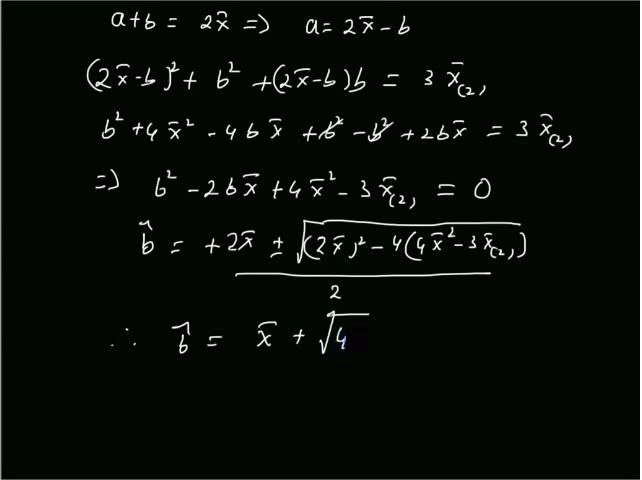 a+b = 2x̄ => a = 2x̄-b
(2x̄-b)² + b² + (2x̄-b)b = 3x̄₍₂₎
b² + 4x̄² - 4bx̄ + b² - b² + 2bx̄ = 3x̄₍₂₎
=> b² - 2bx̄ + 4x̄² - 3x̄₍₂₎ = 0
b̂ = +2x̄ ± √((2x̄)² - 4(4x̄² - 3x̄₍₂₎))
2
∴ b̂ = x̄ + √4